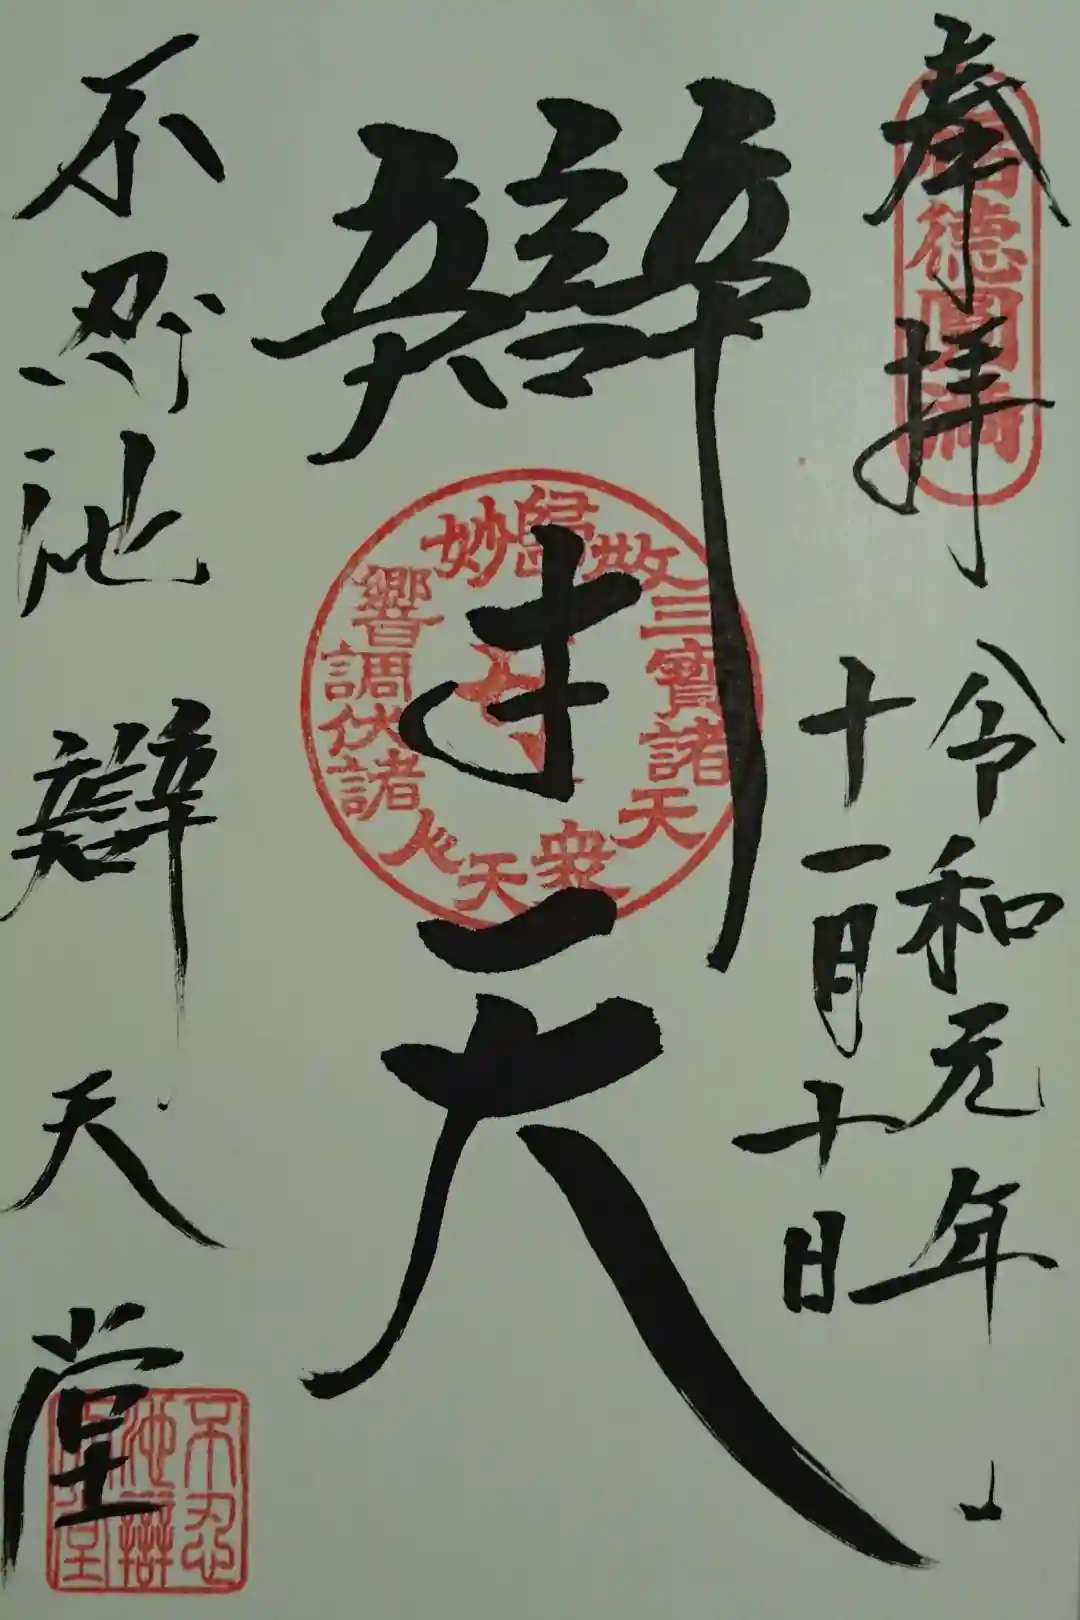 奉拝
福德圓満
令和元年
十一月十日
辯才天
歸敬三寶諸天衆
天心諸伏調響妙
不忍池辯天堂
不忍
池辯
天堂